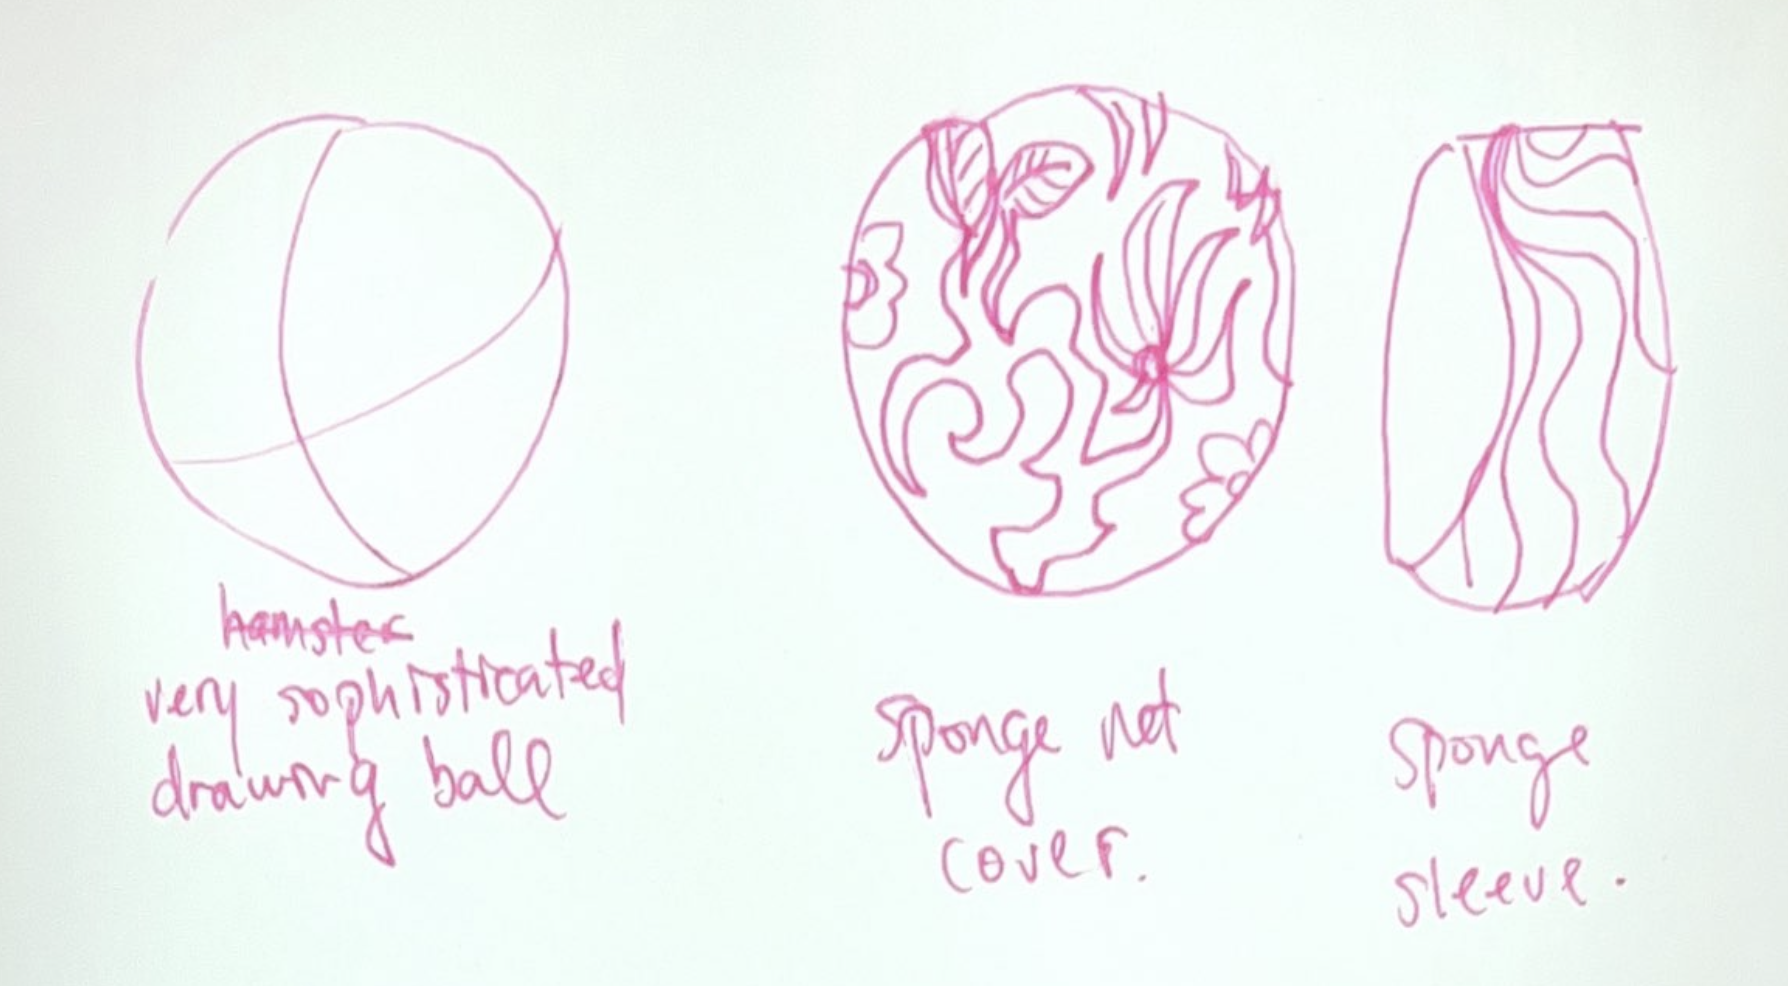 hamster
very sophisticated
drawing ball
sponge net
cover.
sponge
sleeve.